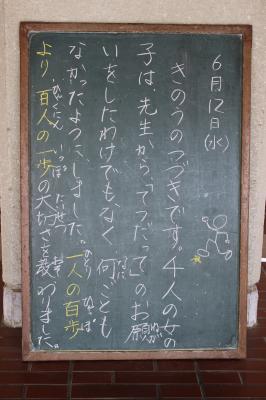 6月12日(水)
きのうのつづきです。4人の女の
子は、先生から、「てつだって」のお願
いをしたわけでも、なく 何ごとも
なかったように、しました。一人の百歩
より、百人の一歩の大切さを教わりました。